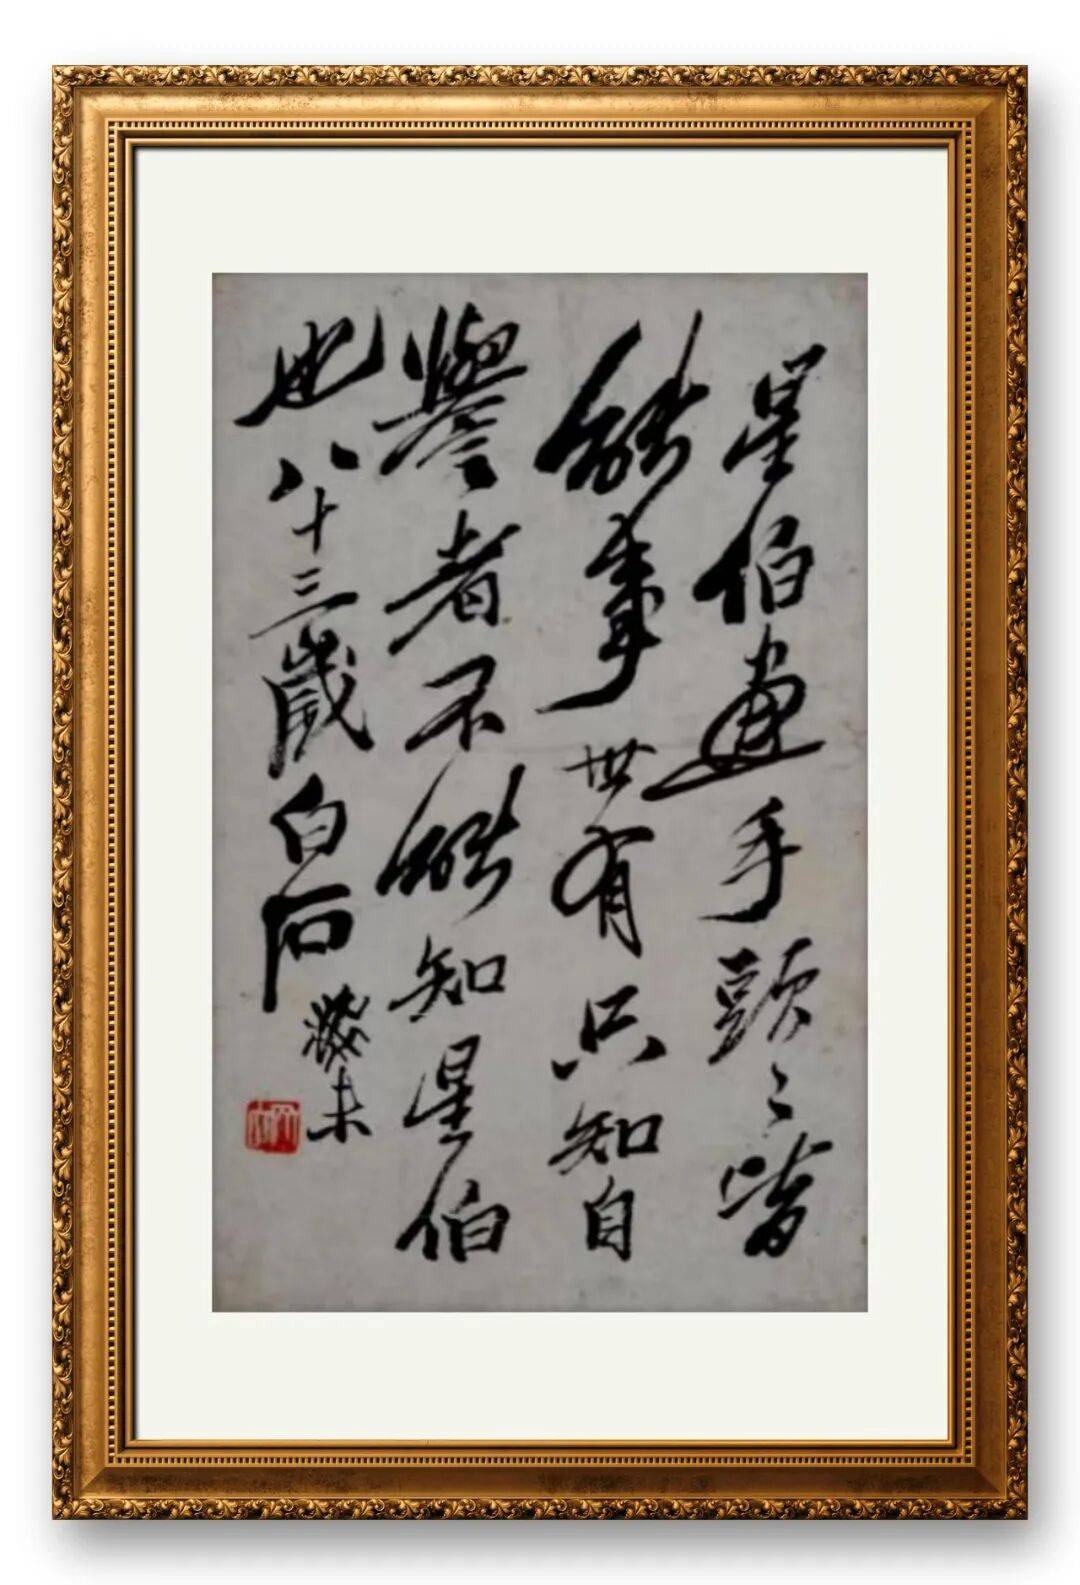 星伯画手頭々皆
能事世有只知自
譽者不能知星伯
也八十三歲白石
癸未